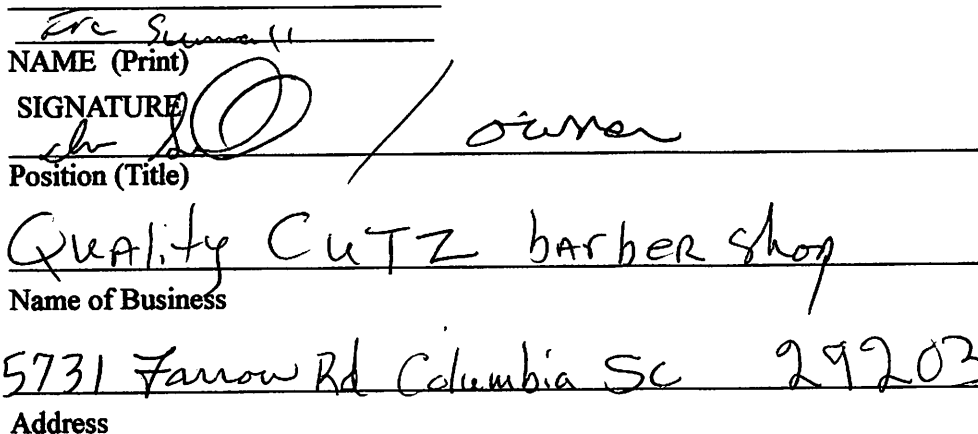 NAME (Print)
SIGNATURE
/ owner
Position (Title)
QuAlity CuTZ bArbeR Shop
Name of Business
5731 Farrow Rd Columbia SC 29203
Address